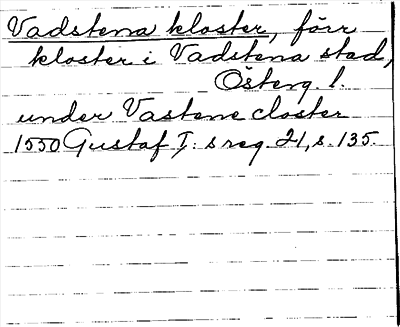 Vadstena kloster, förr
kloster i Vadstena stad,
Österg. l.
under Vastene closter
1550 Gustaf I:s reg. 21, s. 135.